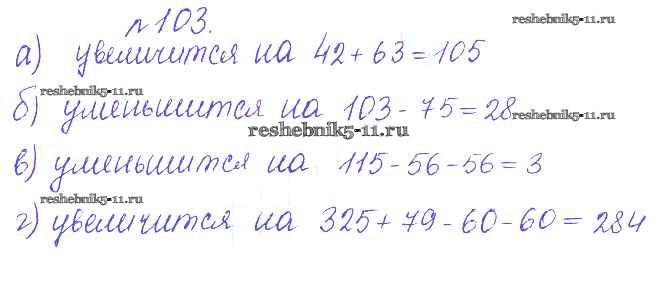 №103.
reshebnik5-11.ru
а) увеличится на 42 + 63 = 105
reshebnik5-11.ru
б) уменьшится на 103 - 75 = 28
reshebnik5-11.ru
reshebnik5-11.ru
в) уменьшится на 115 - 56 - 56 = 3
reshebnik5-11.ru
г) увеличится на 325 + 79 - 60 - 60 = 284